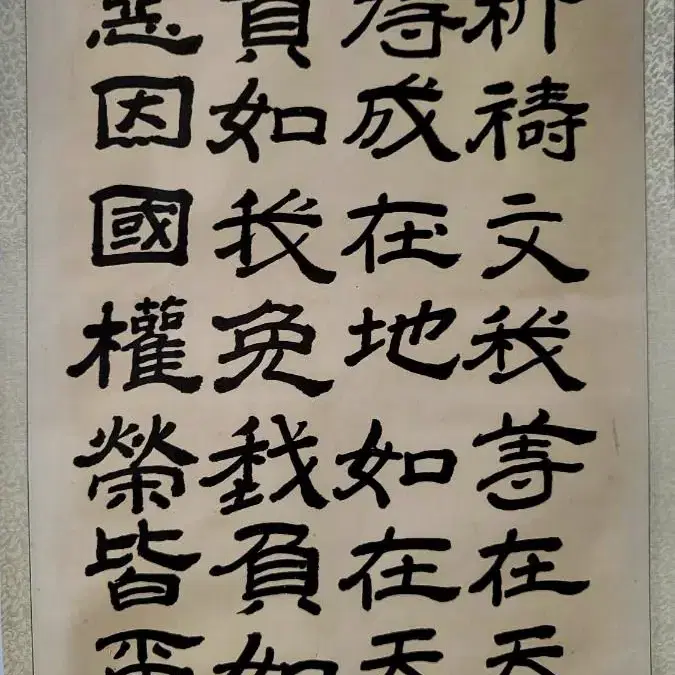 祈禱文我等在天
得成在地如在天
負如我免我負如
惡因國權榮皆